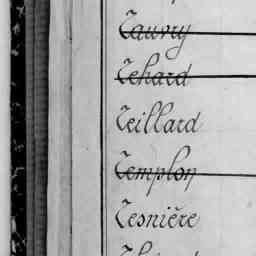 Tauvry
Tehard
Teillard
Templon
Tesnière